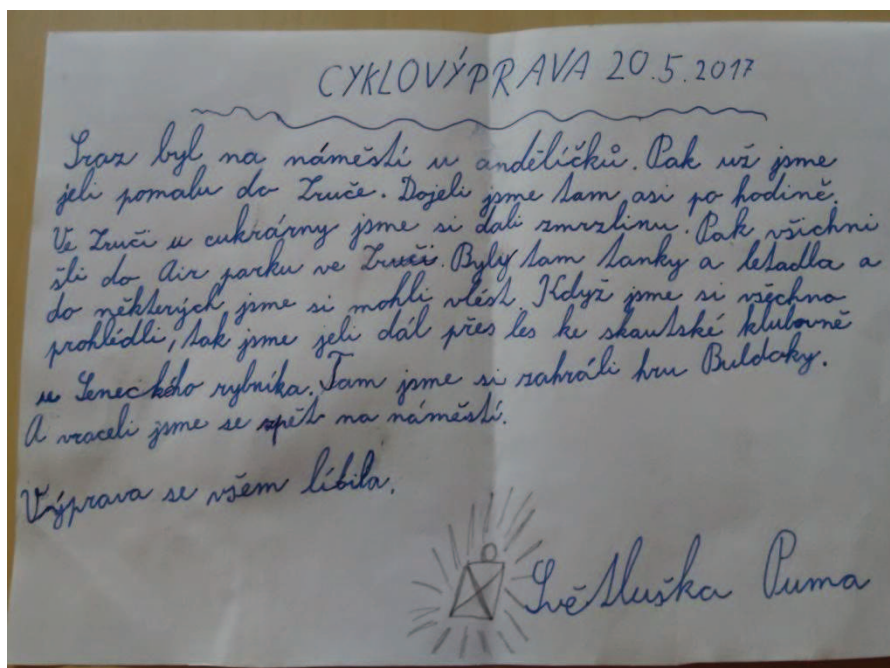 CYKLOVÝPRAVA 20.5.2017
Sraz byl na náměstí u andělíčků. Pak už jsme
jeli pomalu do Zruče. Dojeli jsme tam asi po hodině.
Ve Zruči u cukrárny jsme si dali zmrzlinu. Pak všichni
šli do Air parku ve Zruči. Byly tam tanky a letadla a
do některých jsme si mohli vlést. Když jsme si všechno
prohlédli, tak jsme jeli dál přes les ke skautské klubovně
u Seneckého rybníka. Tam jsme si zahráli hru Buldoky.
A vraceli jsme se zpět na náměstí.
Výprava se všem líbila.
Světluška Puma